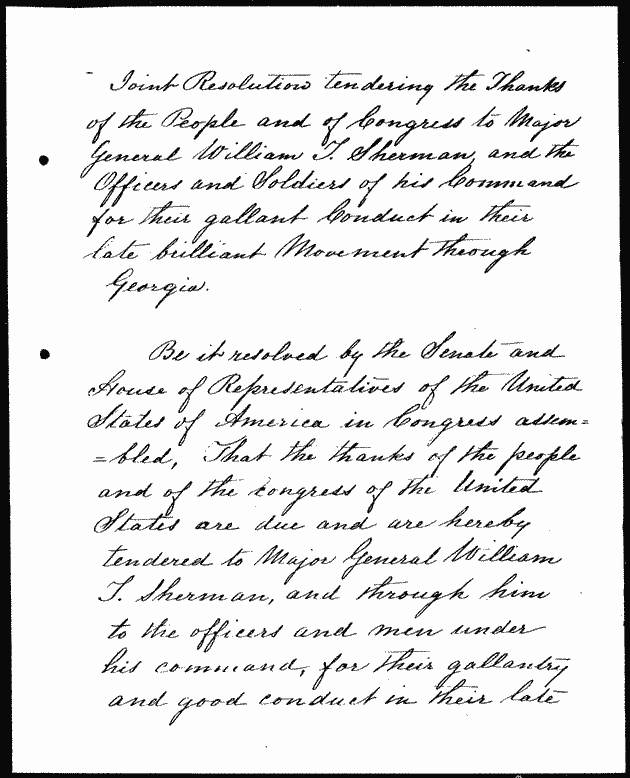 Joint Resolution tendering the Thanks
of the People and of Congress to Major
General William T. Sherman, and the
Officers and Soldiers of his Command
for their gallant Conduct in their
late brilliant Movement through
Georgia.
Be it resolved by the Senate and
House of Representatives of the United
States of America in Congress assem=
=bled, That the thanks of the people
and of the congress of the United
States are due and are hereby
tendered to Major General William
T. Sherman, and through him
to the officers and men under
his command, for their gallantry
and good conduct in their late